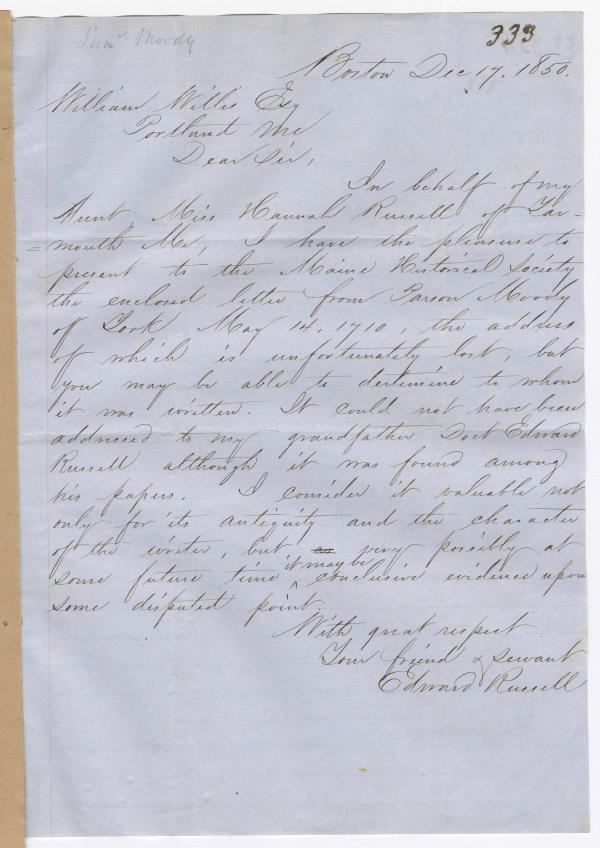 Sam' Moody
333
Boston Dec 17. 1850.
William Willis Esq
Portland Me
Dear Sir,
In behalf of my
Aunt, Miss Hannah Russell of Yar-
=mouth Me, I have the pleasure to
present to the Maine Historical Society
the enclosed letter from Parson Moody
of York May 14. 1710, the address
of which is unfortunately lost, but
you may be able to determine to whom
it was written. It could not have been
addressed to my grandfather Doct Edward
Russell although it was found among
his papers. I consider it valuable not
only for its antiquity and the character
of the writer, but as very possibly at
some future time it may be conclusive evidence upon
some disputed point.
With great respect
Your friend & servant
Edward Russell